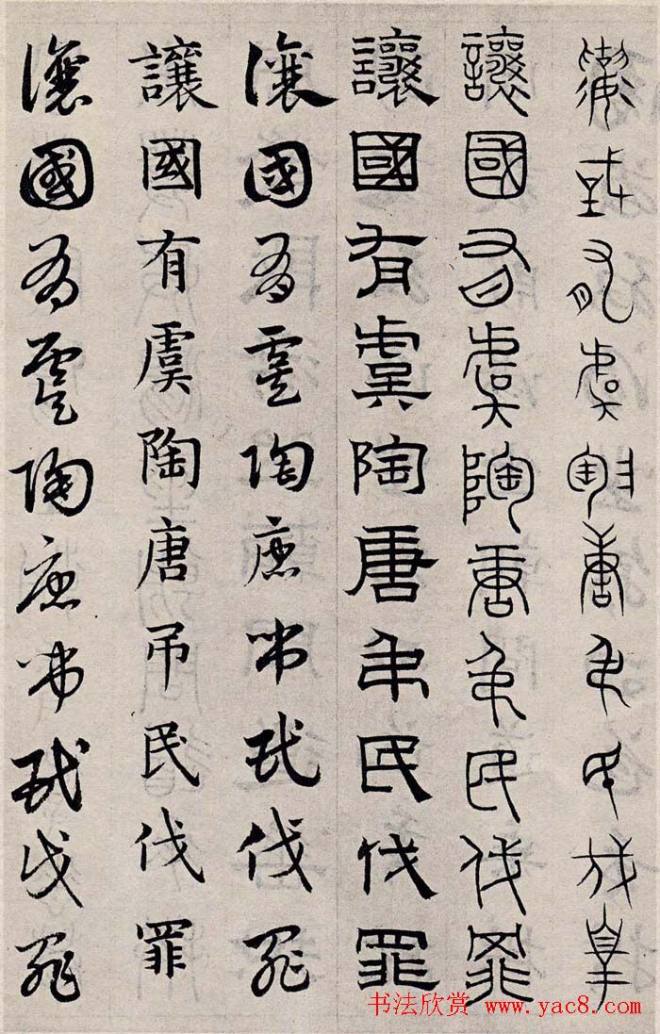 讓國有虞陶唐弔民伐罪
讓國有虞陶唐弔民伐罪
讓國有虞陶唐弔民伐罪
讓國有虞陶唐弔民伐罪
讓國有虞陶唐吊民伐罪
讓國有虞陶唐弔民伐罪
书法欣赏 www.yac8.com